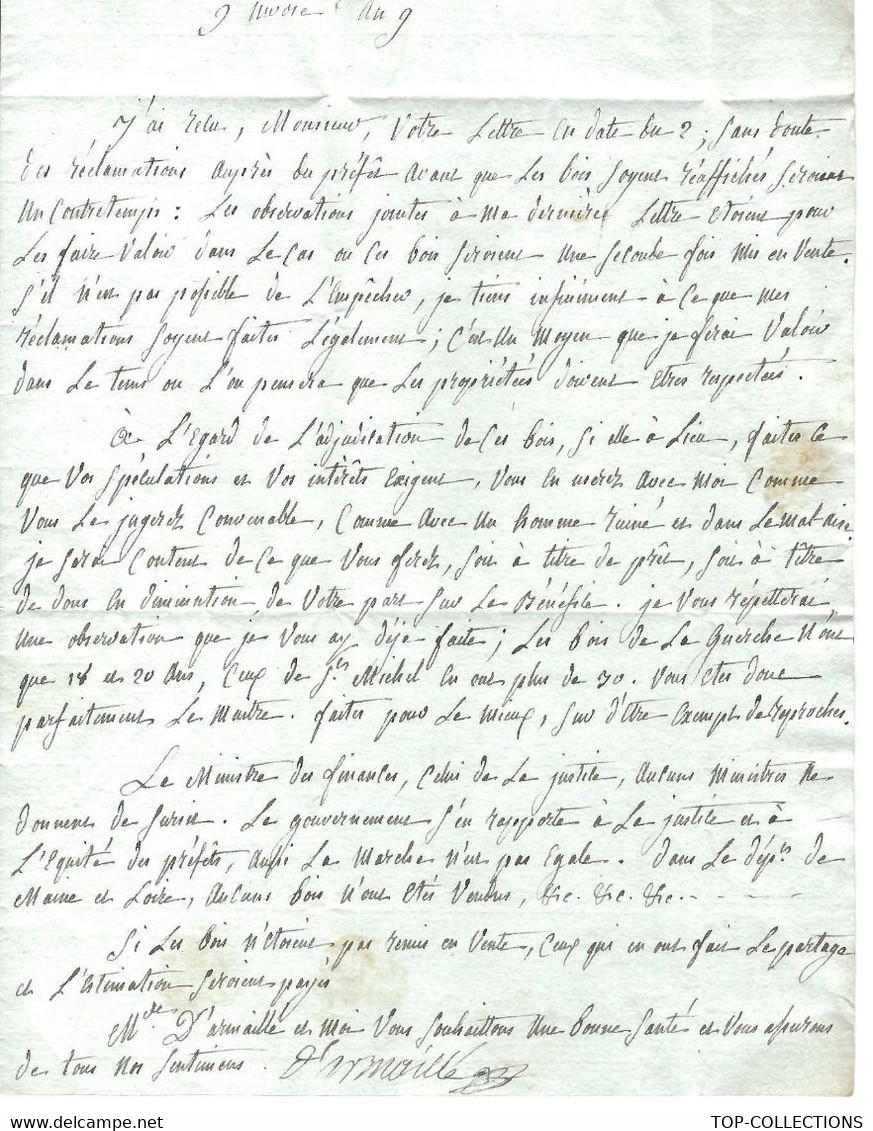 9 nivose An 9
J'ai reçu, Monsieur, Votre Lettre En date du 2; sans doute
des réclamations auprès du préfêt avant que Les bois soyent réaffichés seroient
un contretemps: Les observations jointes à ma dernière Lettre etoient pour
Les faire Valoir dans Le cas ou ces bois seroient une seconde fois mis en Vente.
s'il n'est pas possible de L'Empêcher, je tiens infiniment à ce que mes
réclamations soyent faites Légalement; c'est un moyen que je ferai Valoir
dans Le tems ou L'on pensera que Les propriétées doivent etres respectées.
à L'Egard de L'adjudication de ces bois, si elle à Lieu, faites ce
que Vos spéculations et Vos intérêts Exigent, Vous En userez avec moi comme
Vous Le jugerez convenable, comme avec un homme ruiné et dans Le mal aise.
je serai content de ce que Vous ferez, soit à titre de prêt, soit à têtre
de dons En diminution, de Votre part sur Le Bénéfice. je Vous répetterai
une observation que je Vous ay déja faite; Les bois de La Guerche n'ont
que 18 et 20 ans, ceux de St Michel En ont plus de 30. Vous etes donc
parfaitement Le maitre. faites pour Le mieux, sur d'être Exempt de reproches.
Le Ministre des finances, celui de La justice, aucuns ministres ne
donnent de sursis. Le gouvernement s'en rapporte à La justice et à
L'Equité des préfêts, aussi La marche n'est pas Egale. dans Le dépt de
Maine et Loire, aucuns bois n'ont etés Vendus, &c. &c. &c.
si Les bois n'étoient pas remis en Vente, ceux qui en ont fait Le partage
et L'Estimation seroient payés
Mde D'armaillé et moi Vous souhaittons une bonne santé et Vous assurons
de tous nos sentimens. D'armaillé
TOP-COLLECTIONS